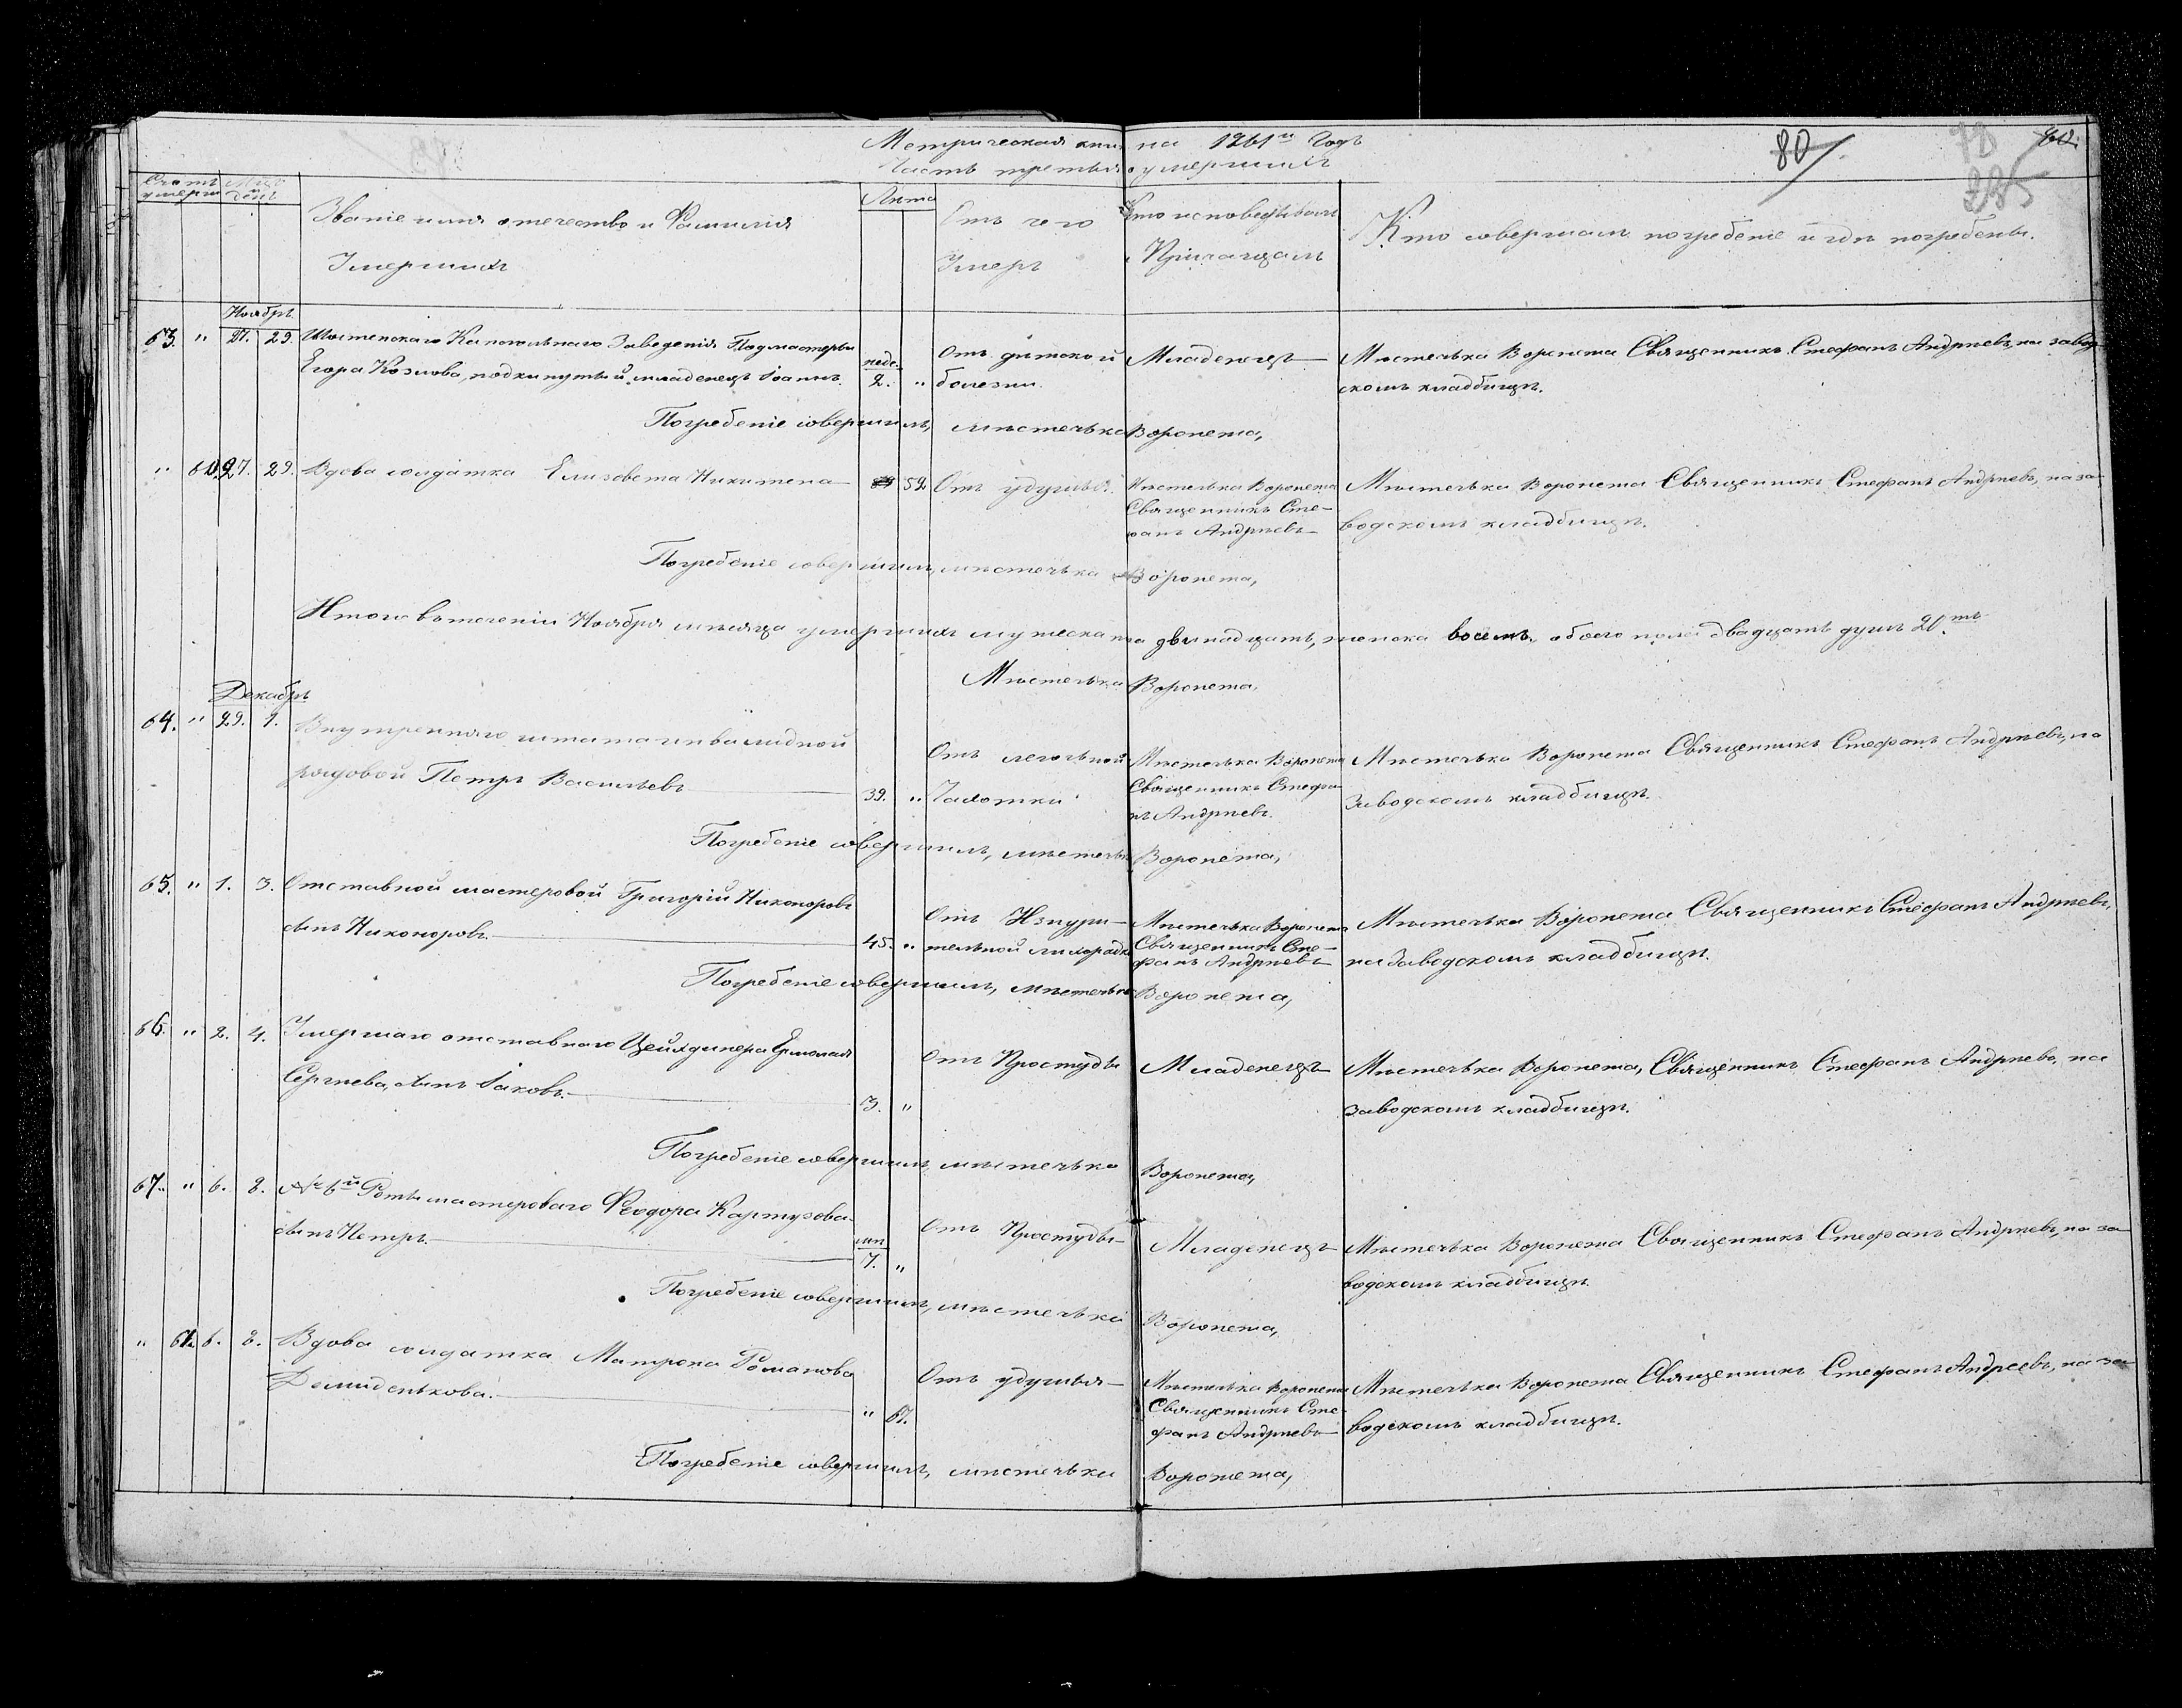 Метрическая книга на 1861й Годъ
Часть третья о умершихъ
80
78
60.
285
Счетъ умерш.
Мцъ и день
Званіе имя отечество и Фамилія Умершихъ
Лета
Отъ чего Умеръ
Кто исповедывалъ и Прічащалъ
Кто совершалъ погребеніе и гдѣ погребены.
Ноябрь.
63. " 27. 29. Шостенскаго Капсюльнаго Заведенія Подмастерья
Егора Козлова, подкинутый младенецъ Іоаннъ. неде. 2. "
Отъ дѣтской болезни.
Младенецъ
Мѣстечька Воронежа Священникъ Стефанъ Андріевъ, на завод-
скомъ кладбищѣ.
Погребеніе совершилъ, мѣстечька Воронежа,
" 60. 27. 29. Вдова солдатка Елизовета Никитена 52.
Отъ удушья.
Мѣстечька Воронежа
Священникъ Сте-
фанъ Андріевъ
Мѣстечька Воронежа Священникъ Стефанъ Андріевъ, на за-
водскомъ кладбищѣ.
Погребеніе совершилъ, мѣстечька Воронежа,
Итого въ теченіи Ноября мѣсяца умершихъ мужеска пола двѣнадцать, женска восемь, обоего пола двадцать душъ 20.ть
Мѣстечька Воронежа,
Декабрь
64. " 29. 1. Внутренняго штата инвалидной
рядовой Петръ Васильевъ 39. "
Отъ легочьной
Чахотки
Мѣстечька Воронежа
Священникъ Стефа-
нъ Андріевъ.
Мѣстечька Воронежа Священникъ Стефанъ Андріевъ, на
Заводскомъ кладбищѣ.
Погребеніе совершилъ, мѣстечька Воронежа,
65. " 1. 3. Отставной мастеровой Григорій Никоноровъ
сынъ Никоноровъ. 45. "
Отъ Изнури-
тельной лихорадки
Мѣстечька Воронежа
Священникъ Сте-
фанъ Андріевъ
Мѣстечька Воронежа Священникъ Стефанъ Андріевъ,
на Заводскомъ кладбищѣ.
Погребеніе совершилъ, мѣстечька Воронежа,
66. " 2. 4. Умершаго отставнаго Цейхдинера Ермолая
Сергѣева, сынъ Іаковъ. 3. "
Отъ Простуды
Младенецъ
Мѣстечька Воронежа, Священникъ Стефанъ Андріевъ, на
заводскомъ кладбищѣ.
Погребеніе совершилъ мѣстечька Воронежа,
67. " 6. 8. № 6й Роты мастероваго Феодора Картузова
сынъ Петръ. мц. 7. "
Отъ Простуды
Младенецъ
Мѣстечька Воронежа Священникъ Стефанъ Андріевъ, на за-
водскомъ кладбищѣ.
Погребеніе совершилъ, мѣстечька Воронежа,
" 61. 6. 8. Вдова солдатка Матрона Романова
Демиденькова. " 67.
Отъ удушья
Мѣстечька Воронежа
Священникъ Сте-
фанъ Андріевъ
Мѣстечька Воронежа Священникъ Стефанъ Андреевъ, на за-
водскомъ кладбищѣ.
Погребеніе совершилъ, мѣстечька Воронежа,